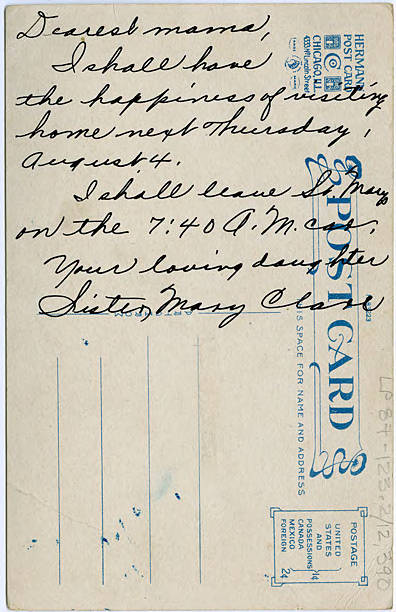 Dearest mama,
I shall have
the happiness of visiting
home next Thursday,
August 4.
I shall leave St. Marys
on the 7:40 A.M. car.
Your loving daughter
Sister Mary Clare
HERMAN
POST CARD
CHICAGO, ILL.
POST CARD
THIS SPACE FOR NAME AND ADDRESS
POSTAGE
UNITED
STATES
AND
POSSESSIONS
CANADA
MEXICO
1¢
FOREIGN 2¢
LP 84-123.212 390